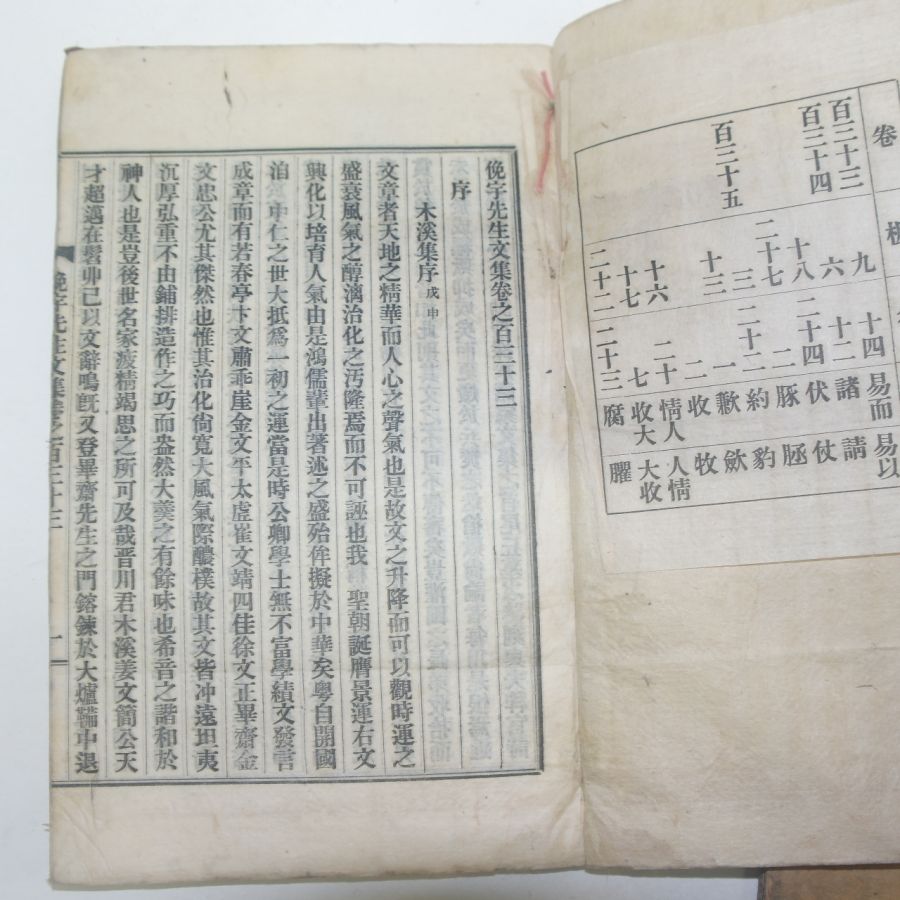 卷
百三十三 九 十四 易而 易以
六 十二 諸 請
百三十四 十八 二十四 伏 仗
二十七 二 豚
三 二十一 約 豹
百三十五 十三 一 歉 歛
二 收 牧
十六 二十 情人 人情
十七 七 收大 大收
二十二 二十三 腐 臞
俛宇先生文集卷之百三十三
序
木溪集序 戊申
文章者天地之精華而人心之聲氣也是故文之升降而可以觀時運之
盛衰風氣之醇漓治化之汚隆焉而不可誣也我 聖朝誕膺景運右文
興化以培育人氣由是鴻儒輩出著述之盛殆侔擬於中華矣粤自開國
治 中仁之世大抵爲一初之運當是時公卿學士無不富學績文發言
成章而有若春亭卞文肅乖崖金文平太虛崔文靖四佳徐文正畢齋金
文忠公尤其傑然也惟其治化尙寬大風氣際醲樸故其文皆冲遠坦夷
沉厚弘重不由鋪排造作之巧而盎然大羹之有餘味也希音之諧和於
神人也是豈後世名家疲精竭思之所可及哉晋川君木溪姜文簡公天
才超邁在髫丱已以文辭鳴旣又登畢齋先生之門鎔鍊於大爐鞴中退
俛宇先生文集卷之百三十三 一